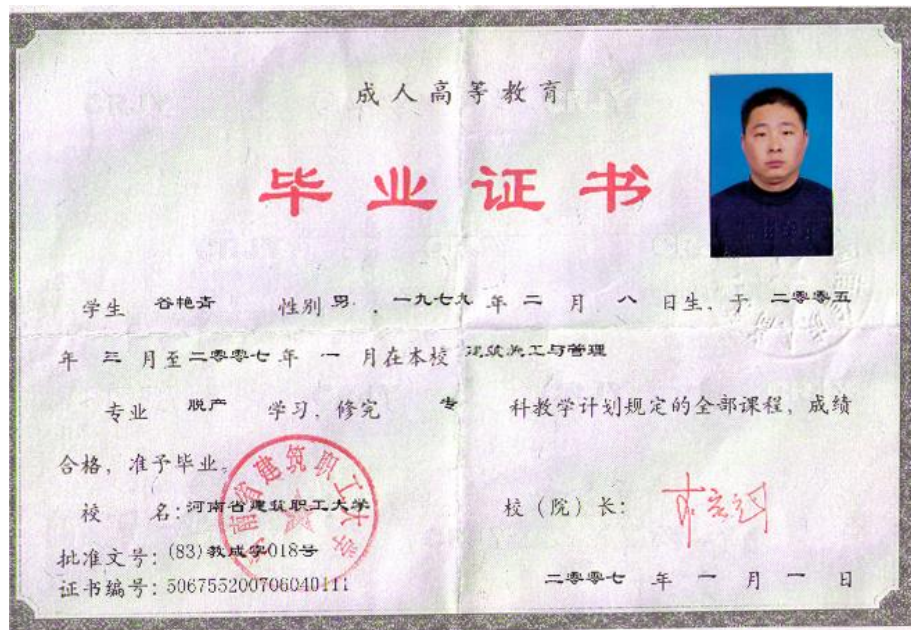 成人高等教育
毕业证书
学生 谷艳青 性别 男 , 一九七九 年 二 月 八 日生、于 二零零五
年 三 月至 二零零七 年 一 月在本校 建筑施工与管理
专业 脱产 学习、修完 专 科教学计划规定的全部课程,成绩
合格,准予毕业。
校 名:河南省建筑职工大学
校(院)长:
批准文号:(83)教成字018号
证书编号:506755200706040111
二零零七 年 一 月 一 日
河南省建筑职工大学